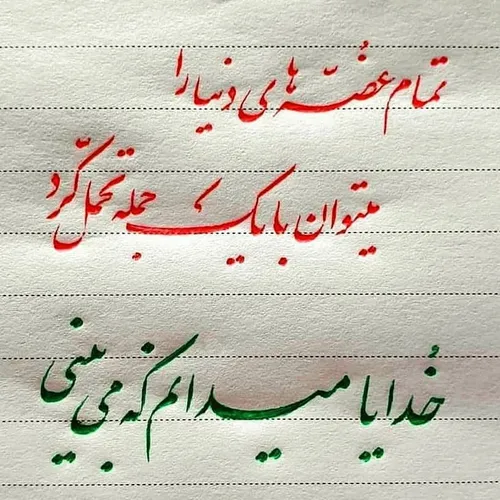 تمام غصّه های دنیا را
میتوان با یک جمله تحمّل کرد
خُدایا میدانم که می بینی